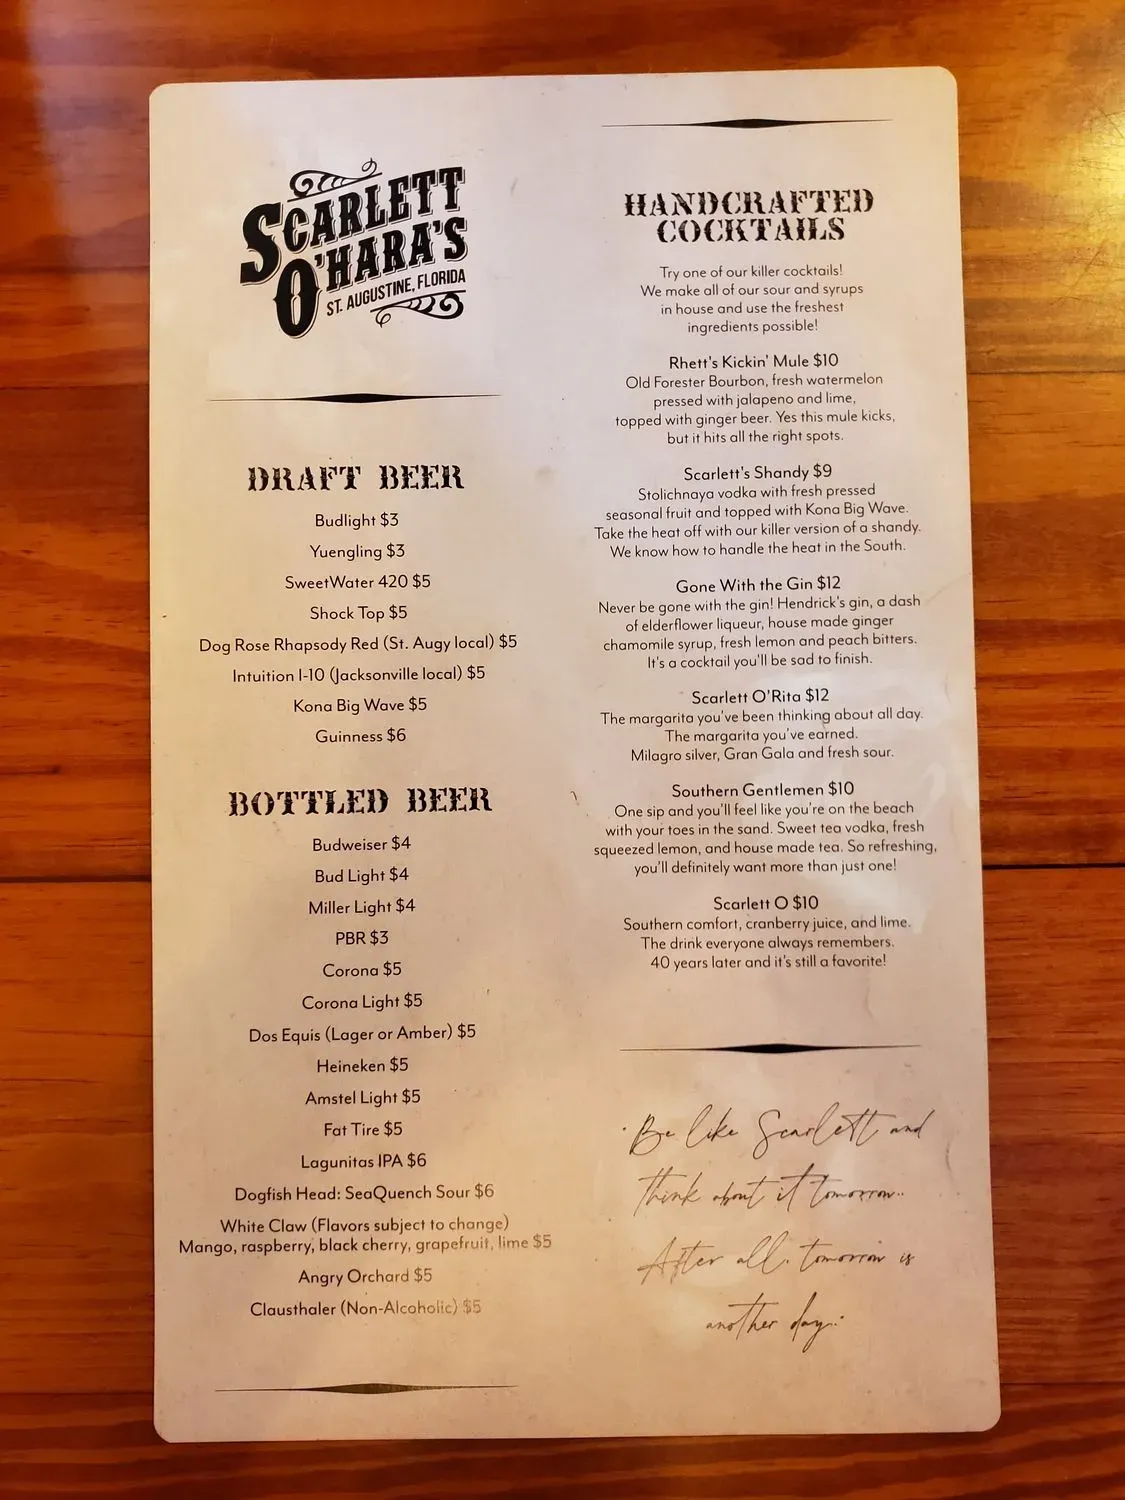 SCARLETT
O'HARA'S
ST. AUGUSTINE, FLORIDA
DRAFT BEER
Budlight $3
Yuengling $3
SweetWater 420 $5
Shock Top $5
Dog Rose Rhapsody Red (St. Augy local) $5
Intuition I-10 (Jacksonville local) $5
Kona Big Wave $5
Guinness $6
BOTTLED BEER
Budweiser $4
Bud Light $4
Miller Light $4
PBR $3
Corona $5
Corona Light $5
Dos Equis (Lager or Amber) $5
Heineken $5
Amstel Light $5
Fat Tire $5
Lagunitas IPA $6
Dogfish Head: SeaQuench Sour $6
White Claw (Flavors subject to change)
Mango, raspberry, black cherry, grapefruit, lime $5
Angry Orchard $5
Clausthaler (Non-Alcoholic) $5
HANDCRAFTED
COCKTAILS
Try one of our killer cocktails!
We make all of our sour and syrups
in house and use the freshest
ingredients possible!
Rhett's Kickin' Mule $10
Old Forester Bourbon, fresh watermelon
pressed with jalapeno and lime,
topped with ginger beer. Yes this mule kicks,
but it hits all the right spots.
Scarlett's Shandy $9
Stolichnaya vodka with fresh pressed
seasonal fruit and topped with Kona Big Wave.
Take the heat off with our killer version of a shandy.
We know how to handle the heat in the South.
Gone With the Gin $12
Never be gone with the gin! Hendrick's gin, a dash
of elderflower liqueur, house made ginger
chamomile syrup, fresh lemon and peach bitters.
It's a cocktail you'll be sad to finish.
Scarlett O'Rita $12
The margarita you've been thinking about all day.
The margarita you've earned.
Milagro silver, Gran Gala and fresh sour.
Southern Gentlemen $10
One sip and you'll feel like you're on the beach
with your toes in the sand. Sweet tea vodka, fresh
squeezed lemon, and house made tea. So refreshing,
you'll definitely want more than just one!
Scarlett O $10
Southern comfort, cranberry juice, and lime.
The drink everyone always remembers.
40 years later and it's still a favorite!
Be like Scarlett and
think about it tomorrow..
After all, tomorrow is
another day..